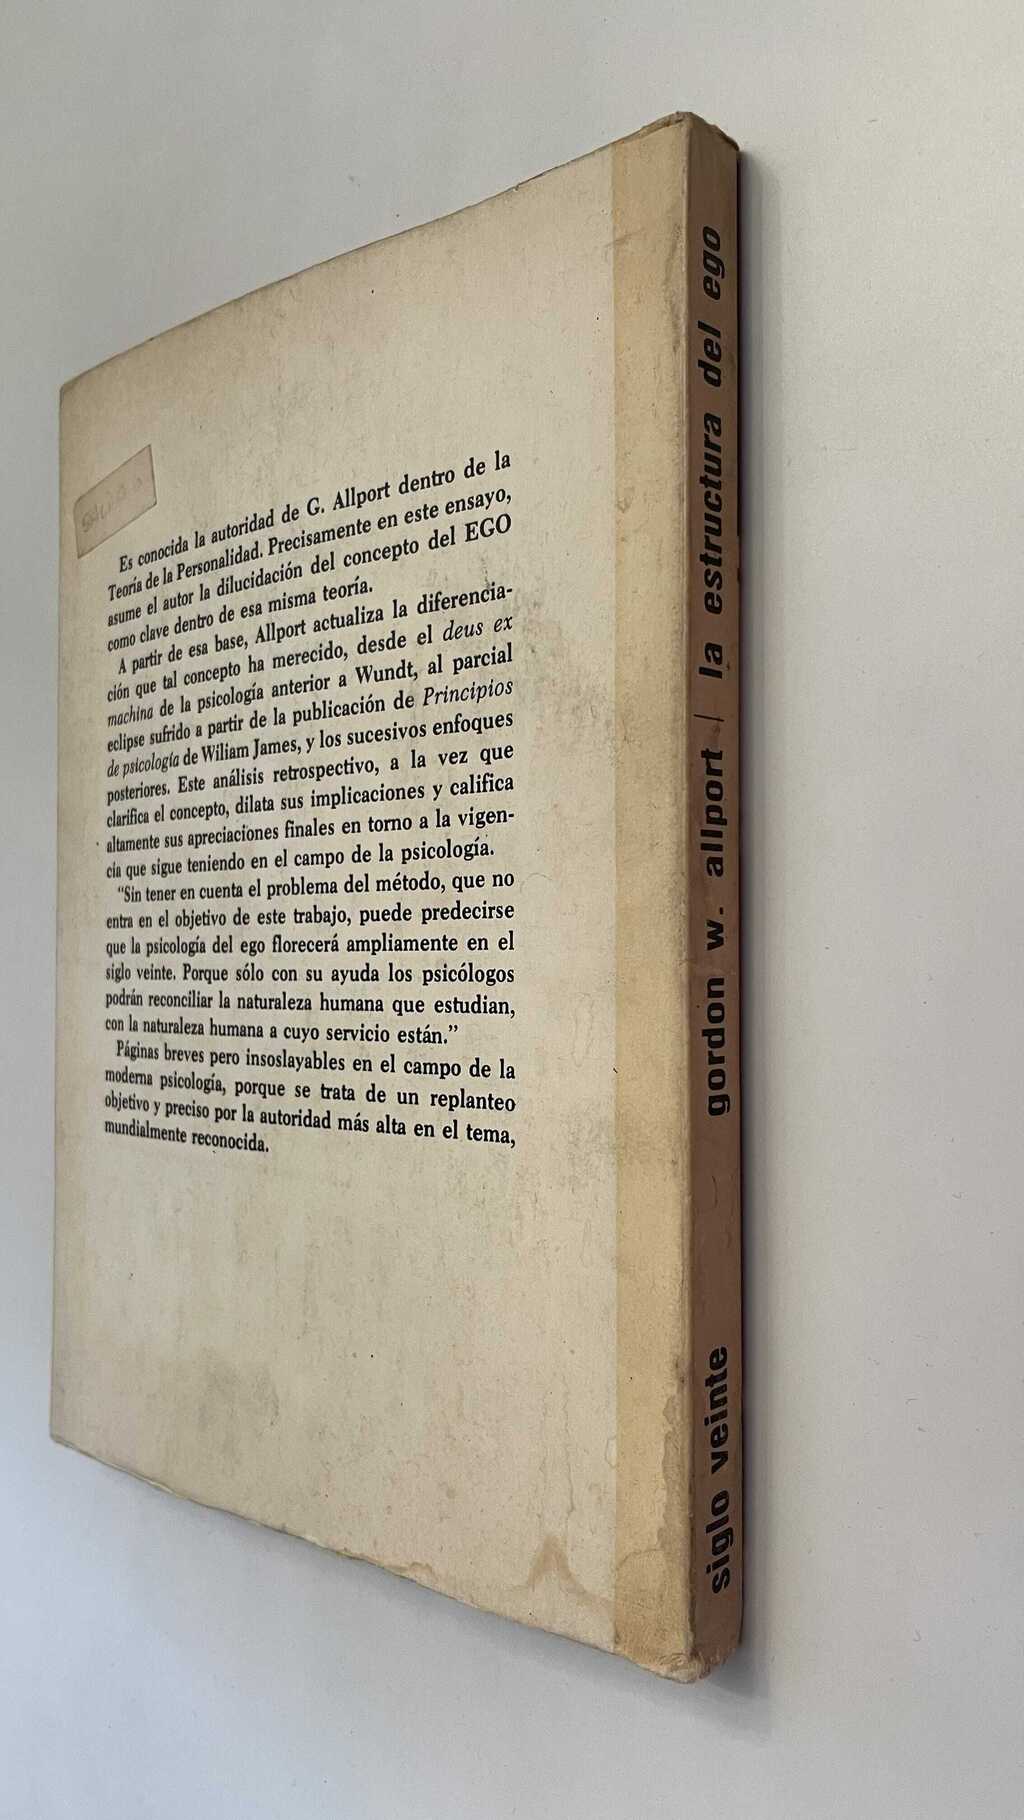 Es conocida la autoridad de G. Allport dentro de la
Teoría de la Personalidad. Precisamente en este ensayo,
asume el autor la dilucidación del concepto del EGO
como clave dentro de esa misma teoría.
A partir de esa base, Allport actualiza la diferencia-
ción que tal concepto ha merecido, desde el deus ex
machina de la psicología anterior a Wundt, al parcial
eclipse sufrido a partir de la publicación de Principios
de psicología de Wiliam James, y los sucesivos enfoques
posteriores. Este análisis retrospectivo, a la vez que
clarifica el concepto, dilata sus implicaciones y califica
altamente sus apreciaciones finales en torno a la vigen-
cia que sigue teniendo en el campo de la psicología.
"Sin tener en cuenta el problema del método, que no
entra en el objetivo de este trabajo, puede predecirse
que la psicología del ego florecerá ampliamente en el
siglo veinte. Porque sólo con su ayuda los psicólogos
podrán reconciliar la naturaleza humana que estudian,
con la naturaleza humana a cuyo servicio están."
Páginas breves pero insoslayables en el campo de la
moderna psicología, porque se trata de un replanteo
objetivo y preciso por la autoridad más alta en el tema,
mundialmente reconocida.
siglo veinte gordon w. allport | la estructura del ego